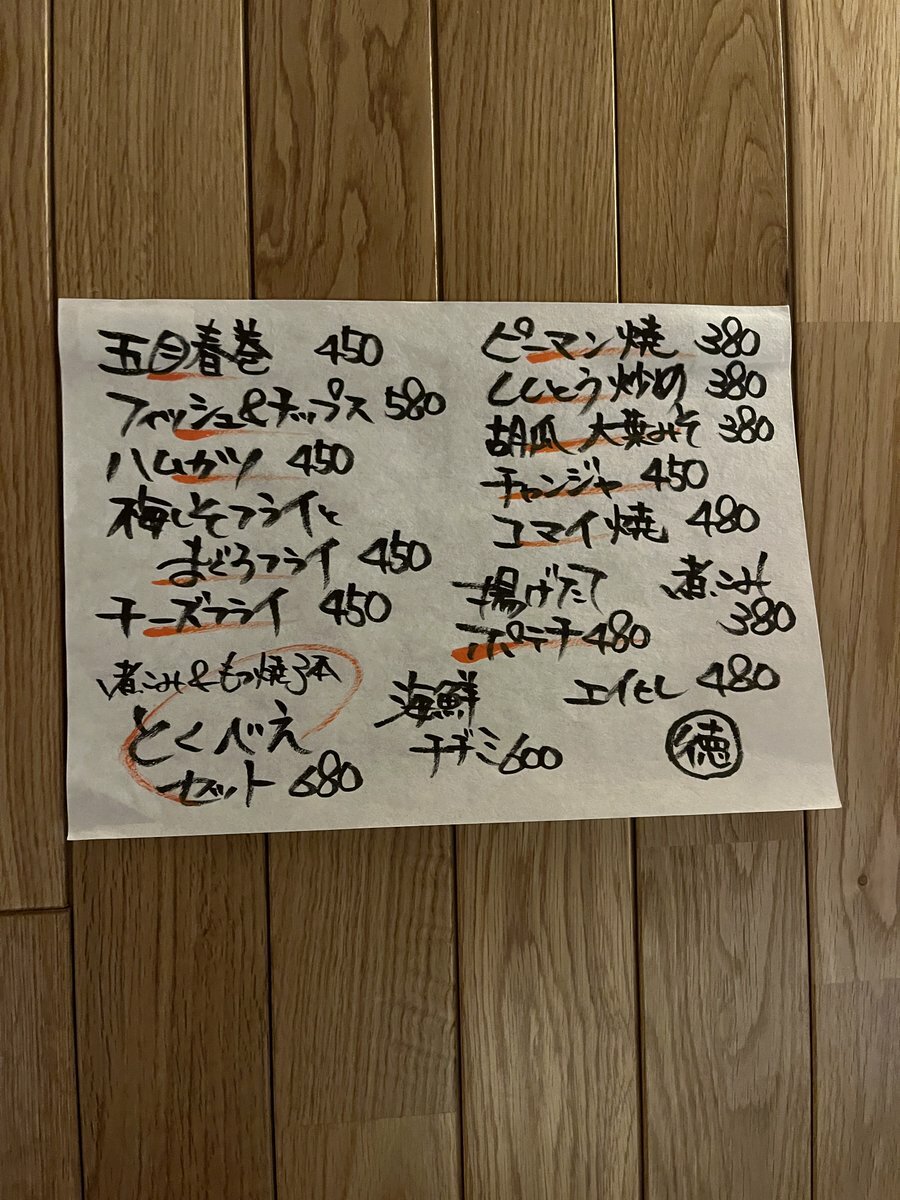 五目春巻 450
フィッシュ&チップス 580
ハムカツ 450
梅しそフライと
まぐろフライ 450
チーズフライ 450
煮こみ&もつ焼3本
とくべえ
セット 680
ピーマン焼 380
ししとう炒め 380
胡瓜 大葉みそ 380
チャンジャ 450
コマイ焼 480
揚げたて
ポテチ 480
煮こみ
380
海鮮
チヂミ 600
エイヒレ 480
徳